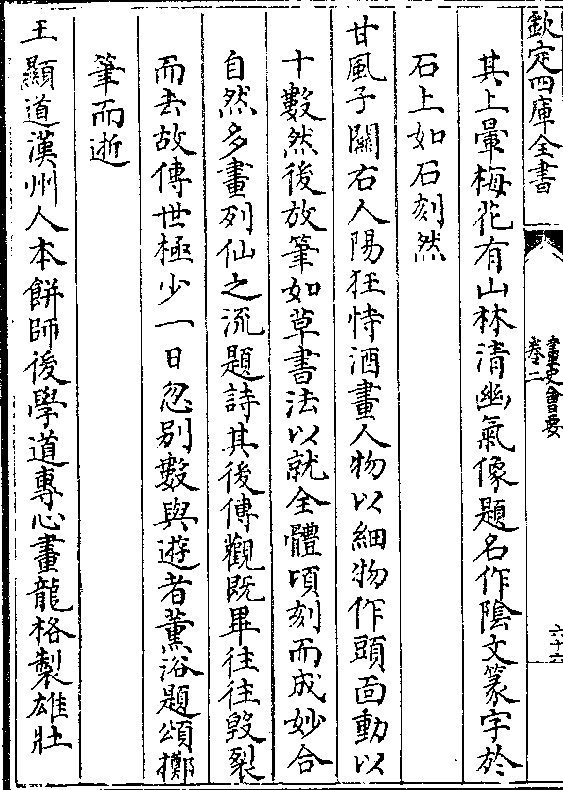 欽定四庫全書
畫史會要
卷二
六十六
其上暈梅花有山林清幽氣像題名作陰文篆字於
石上如石刻然
甘風子關右人陽狂恃酒畫人物以細物作頭面動以
十數然後放筆如草書法以就全體頃刻而成妙合
自然多畫列仙之流題詩其後傳觀既畢往往毀裂
而去故傳世極少一日忽别數與遊者薰浴題頌擲
筆而逝
王顯道漢州人本餅師後學道專心畫龍格製雄壯